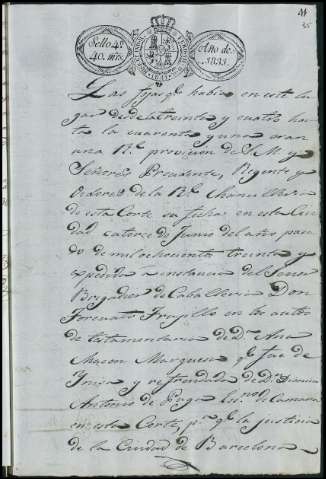 41
35
Sello 4º
40. mrs.
Año de
1833.
Las fojas qe. habia en este lu
gar desde la treinta y cuatro has
ta la cuarenta y una eran
una Rl. provision de S.M. y
Señores Presidente, Regente y
Oydores de la Rl. Chancilleria
de esta Corte su fecha en esta Ciu
dad catorce de Junio del año pasa
do de mil ochocientos treinta y
expedida a instancia del Señor
Brigadier de Caballeria Don
Torcuato Trujillo en los autos
de testamentaria de Da. Ana
Macon Marquesa qe. fue de
y refrendada de Dn.
Antonio de Puga Esno. de Camara
en esta Corte, pa. qe. la justicia
de la Ciudad de Barcelona